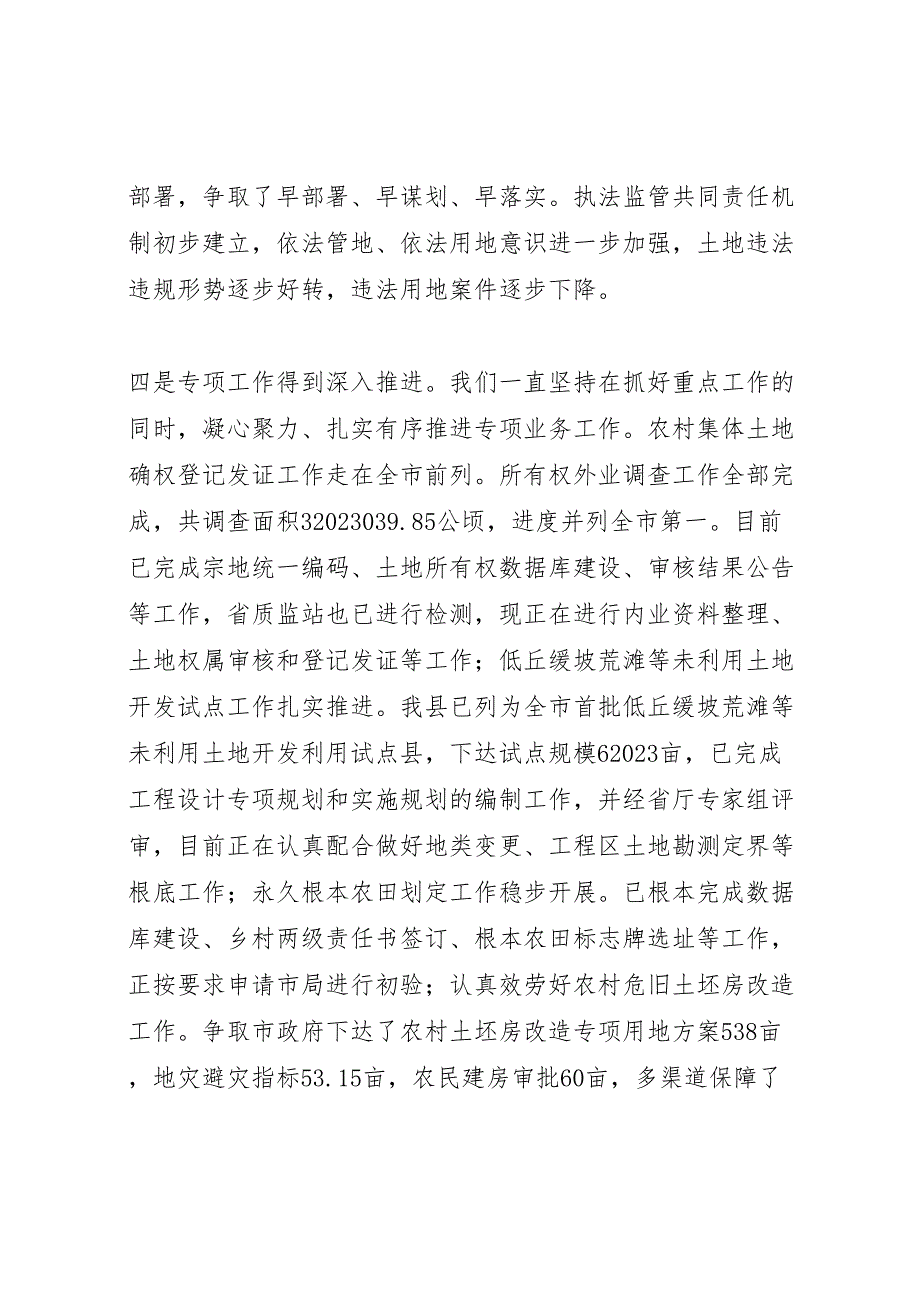 部署，争取了早部署、早谋划、早落实。执法监管共同责任机
制初步建立，依法管地、依法用地意识进一步加强，土地违法
违规形势逐步好转，违法用地案件逐步下降。
四是专项工作得到深入推进。我们一直坚持在抓好重点工作的
同时，凝心聚力、扎实有序推进专项业务工作。农村集体土地
确权登记发证工作走在全市前列。所有权外业调查工作全部完
成，共调查面积32023039.85公顷，进度并列全市第一。目前
已完成宗地统一编码、土地所有权数据库建设、审核结果公告
等工作，省质监站也已进行检测，现正在进行内业资料整理、
土地权属审核和登记发证等工作；低丘缓坡荒滩等未利用土地
开发试点工作扎实推进。我县已列为全市首批低丘缓坡荒滩等
未利用土地开发利用试点县，下达试点规模62023亩，已完成
工程设计专项规划和实施规划的编制工作，并经省厅专家组评
审，目前正在认真配合做好地类变更、工程区土地勘测定界等
根底工作；永久根本农田划定工作稳步开展。已根本完成数据
库建设、乡村两级责任书签订、根本农田标志牌选址等工作，
正按要求申请市局进行初验；认真效劳好农村危旧土坯房改造
工作。争取市政府下达了农村土坯房改造专项用地方案538亩
，地灾避灾指标53.15亩，农民建房审批60亩，多渠道保障了